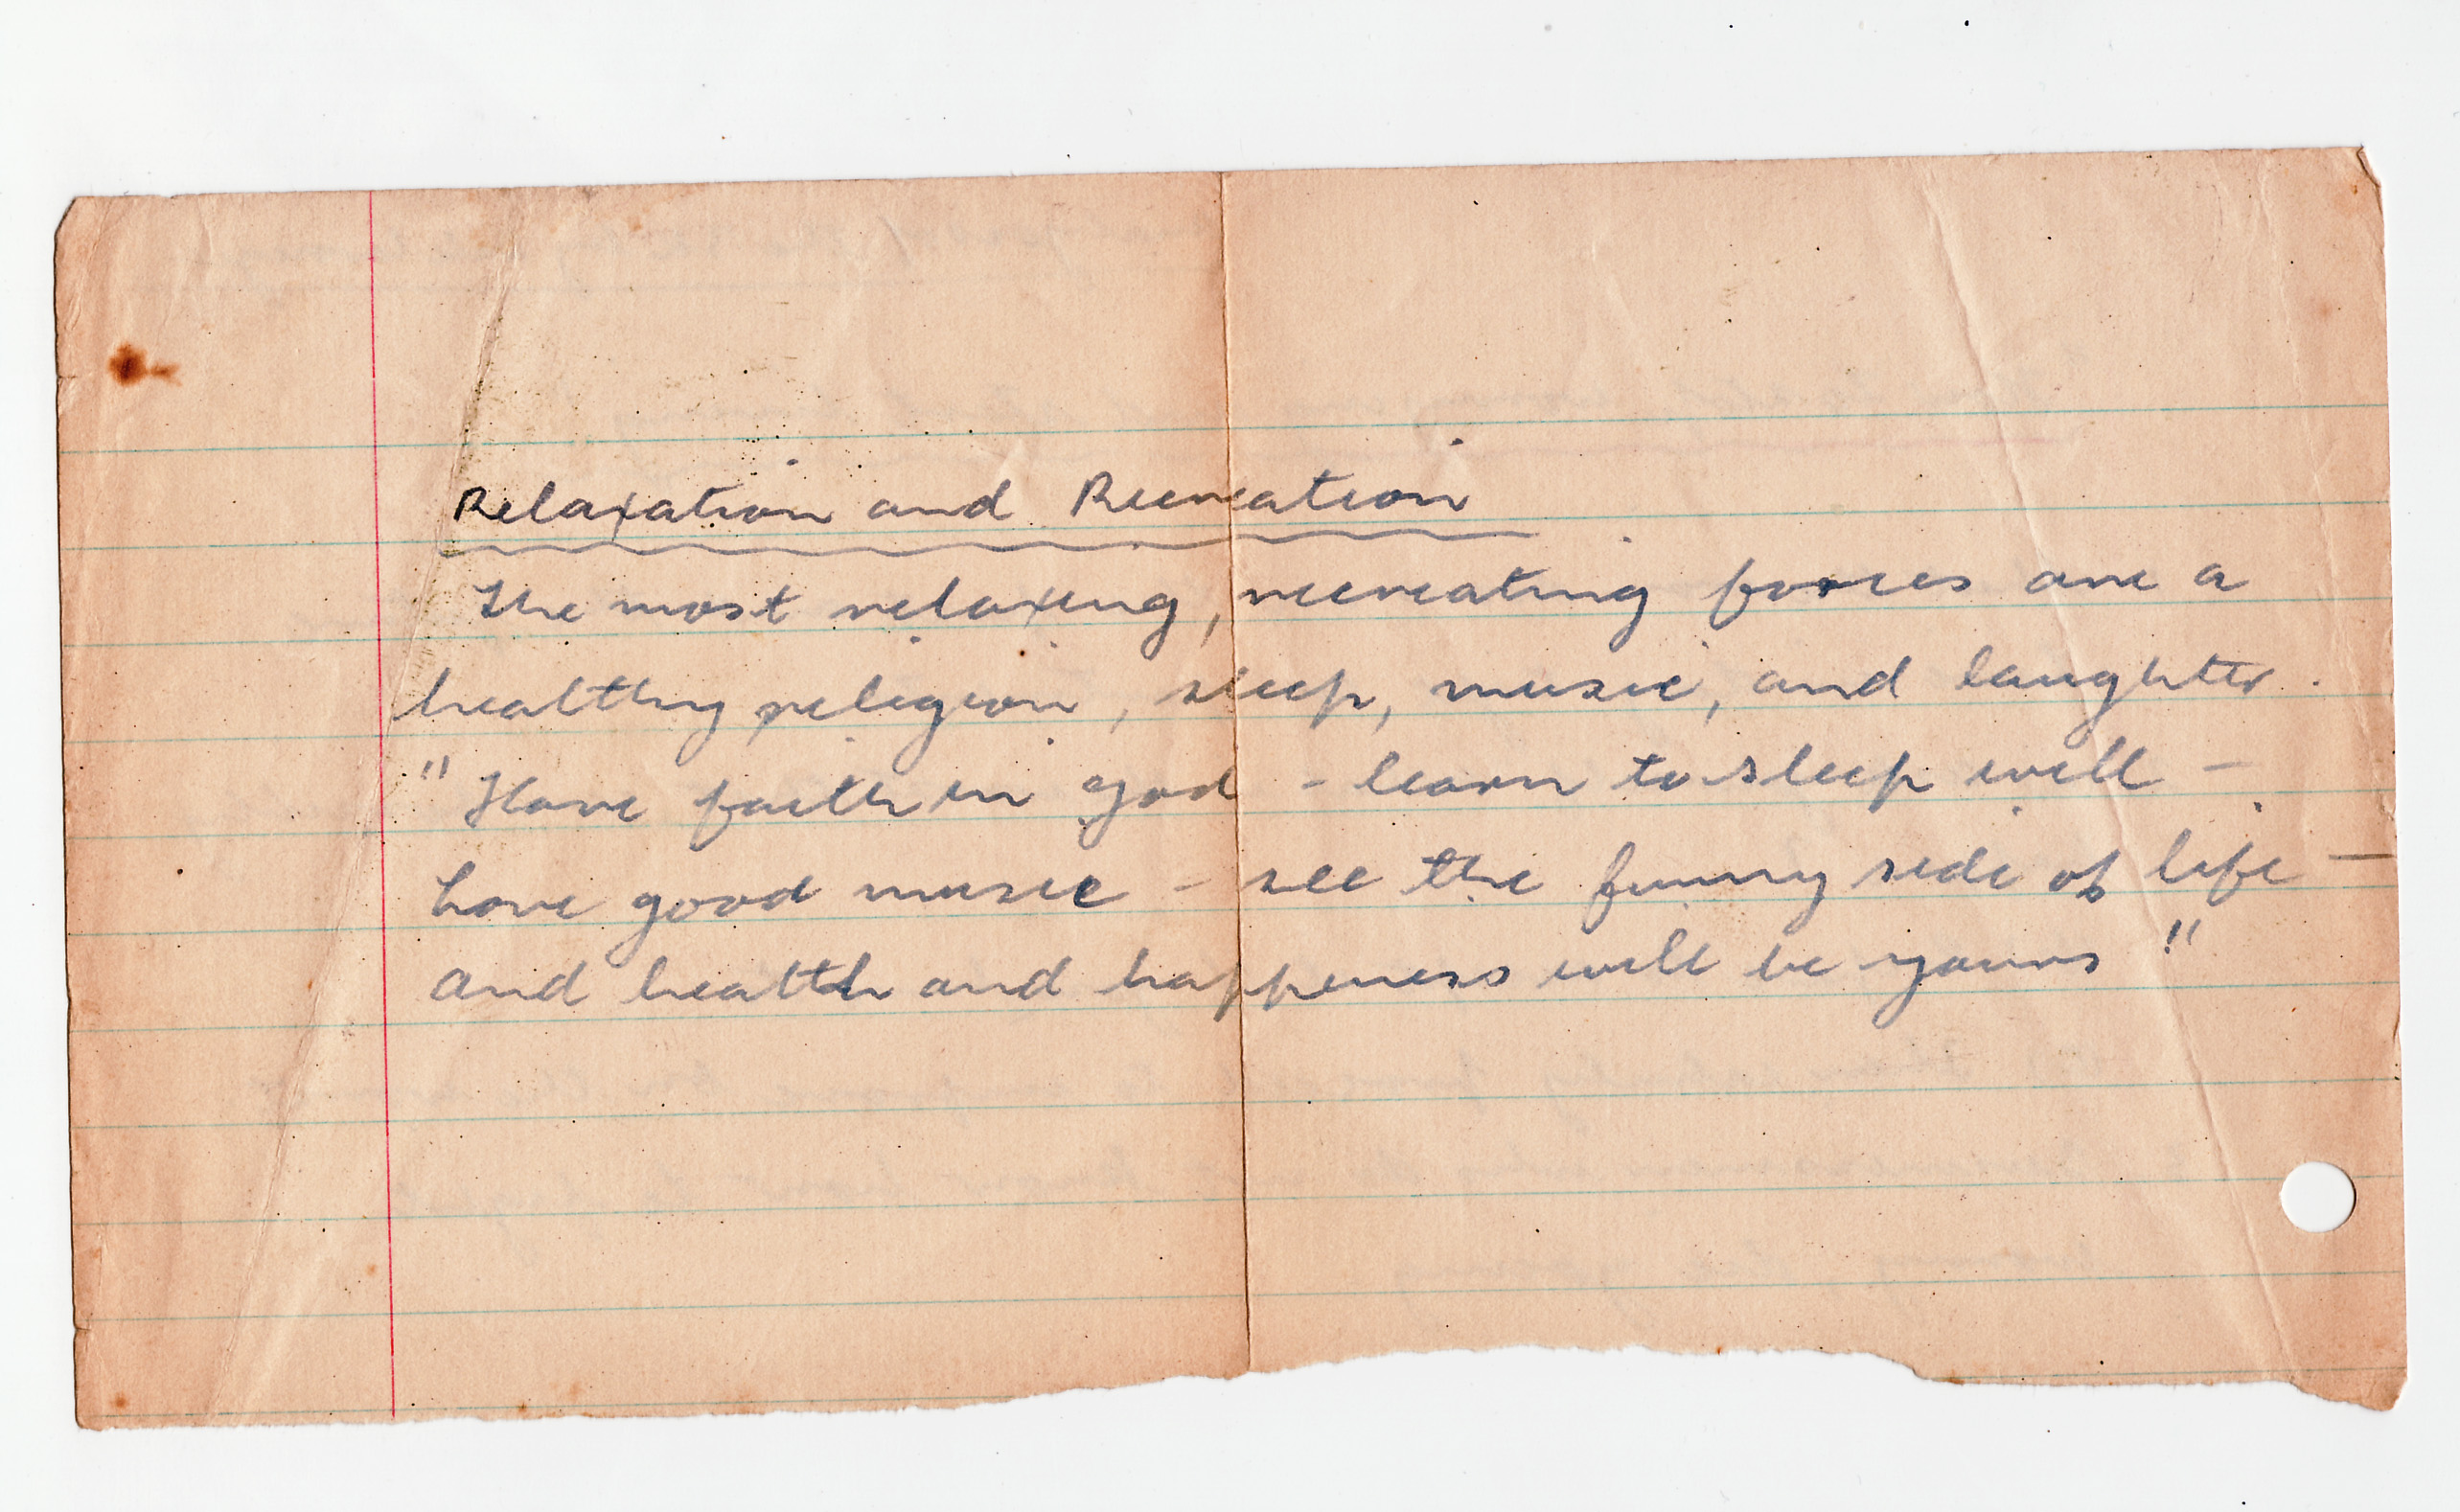 Relaxation and Recreation
The most relaxing, recreating forces are a
healthy religion, sleep, music, and laughter.
"Have faith in God - learn to sleep well -
Love good music - see the funny side of life -
and health and happiness will be yours"